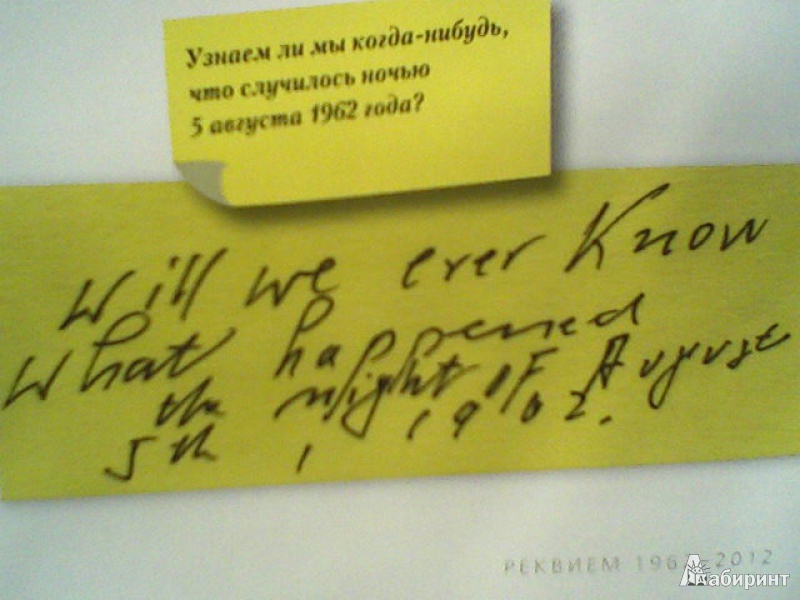 Узнаем ли мы когда-нибудь,
что случилось ночью
5 августа 1962 года?
Will we ever Know
What happened
the night of August
5th, 1962.
РЕКВИЕМ 1962–2012
Лабиринт